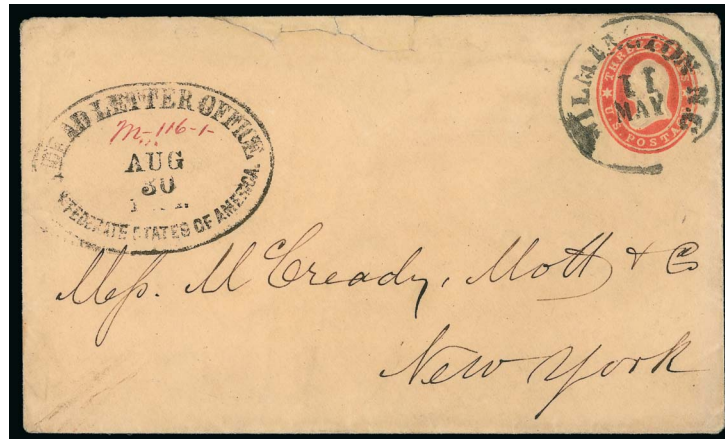 DEAD LETTER OFFICE
M-116-1-
AUG
30
FEDERATE STATES OF AMERICA.
WILMINGTON N.C
11
MAR
THREE
U.S POSTA
Mess. McCready, Mott & Co
New York